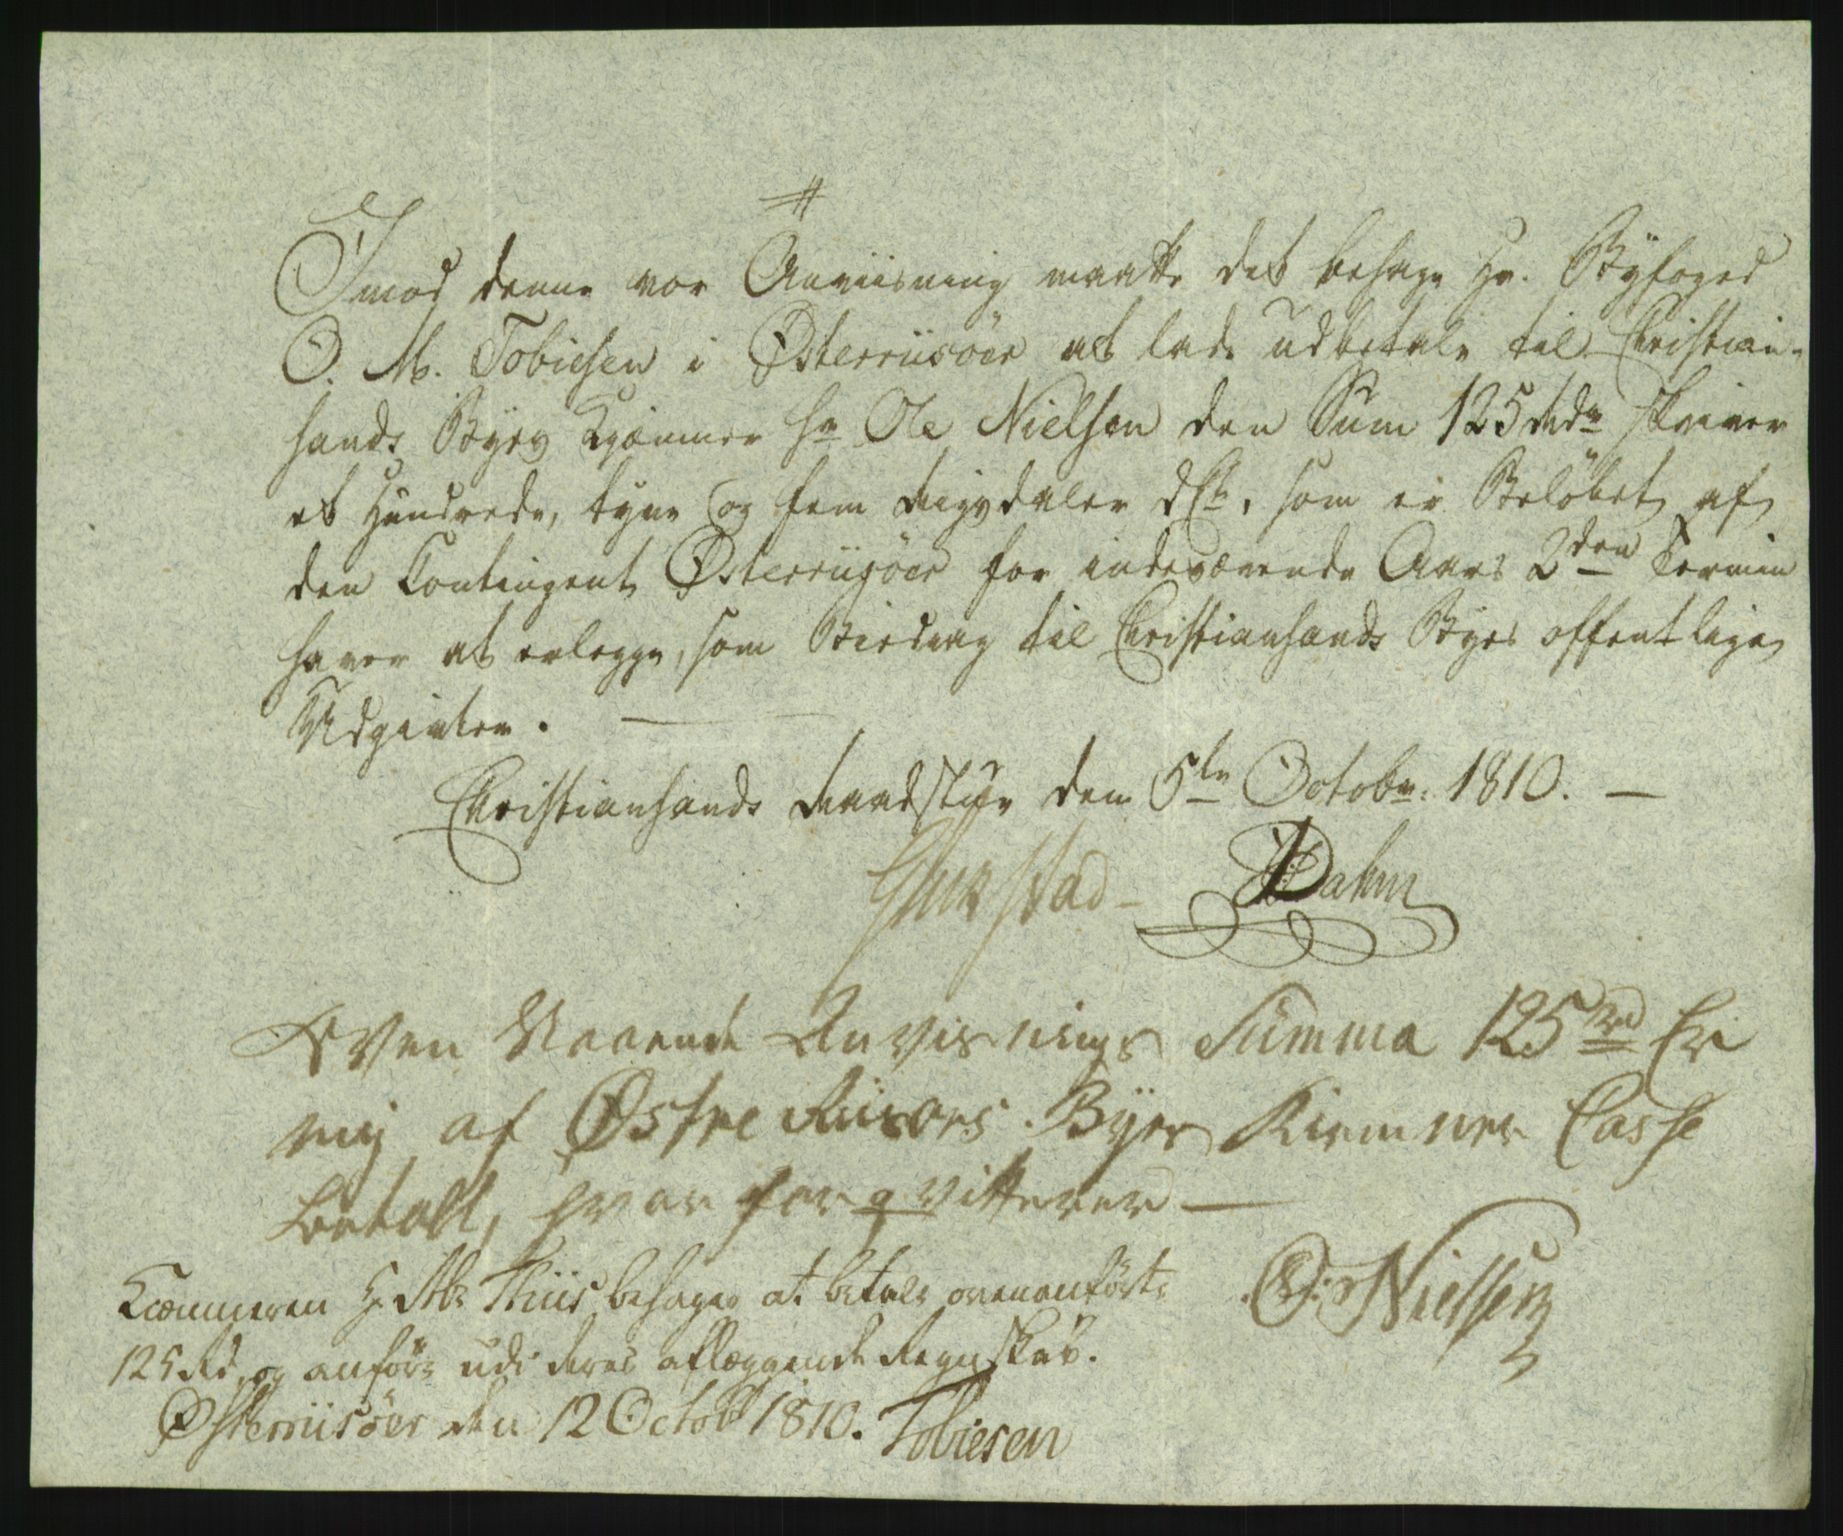 #
Imod denne vor Anviisning maatte det behage Hr. Byfoged
O. M. Tobiesen i Østerriisöer at lade udbetale til Christian-
sands Byes Kjæmner Hr Ole Nielsen den Sum 125 Rdr skriver
et Hundrede, tyve og fem Rigsdaler dCt, som er Belöbet af
den Contingent Østerriisöer for indeværende Aars 2den Termin
haver at erlegge, som Bidrag til Christiansands Byes offentlige
Udgivter.
Christiansands Raadstue den 5te Octobr. 1810.
Dahm
Oven Staaende Anvisnings Summa 125 Rd Er
mij af Østre Riisöers Byes Kiemner Casse
betalt, hvor for qvitterer
O: Nielsen
Kæmneren Hr M: Thiis behager at betale ovenanförte
125 Rd, og anföre udi deres aflæggende Regnskab.
Østerriisöer den 12 Octobr 1810. Tobiesen